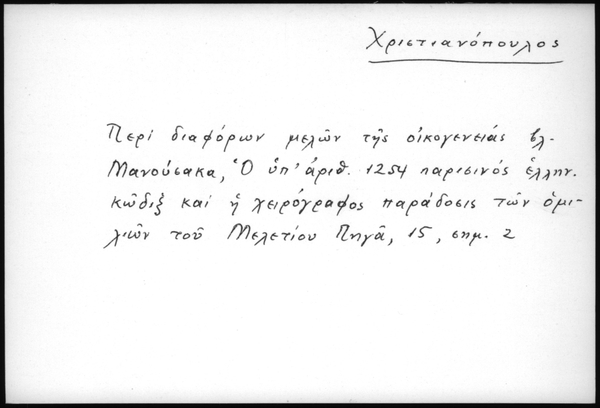 Χριστιανόπουλος
Περί διαφόρων μελῶν τῆς οἰκογενειάς βλ.
Μανούσακα, Ὁ ὑπ' ἀριθ. 1254 παρισινός ἑλλην.
κῶδιξ καί ἡ χειρόγραφος παράδοσις τῶν ὁμι-
λιῶν τοῦ Μελετίου Πηγᾶ, 15, σημ. 2